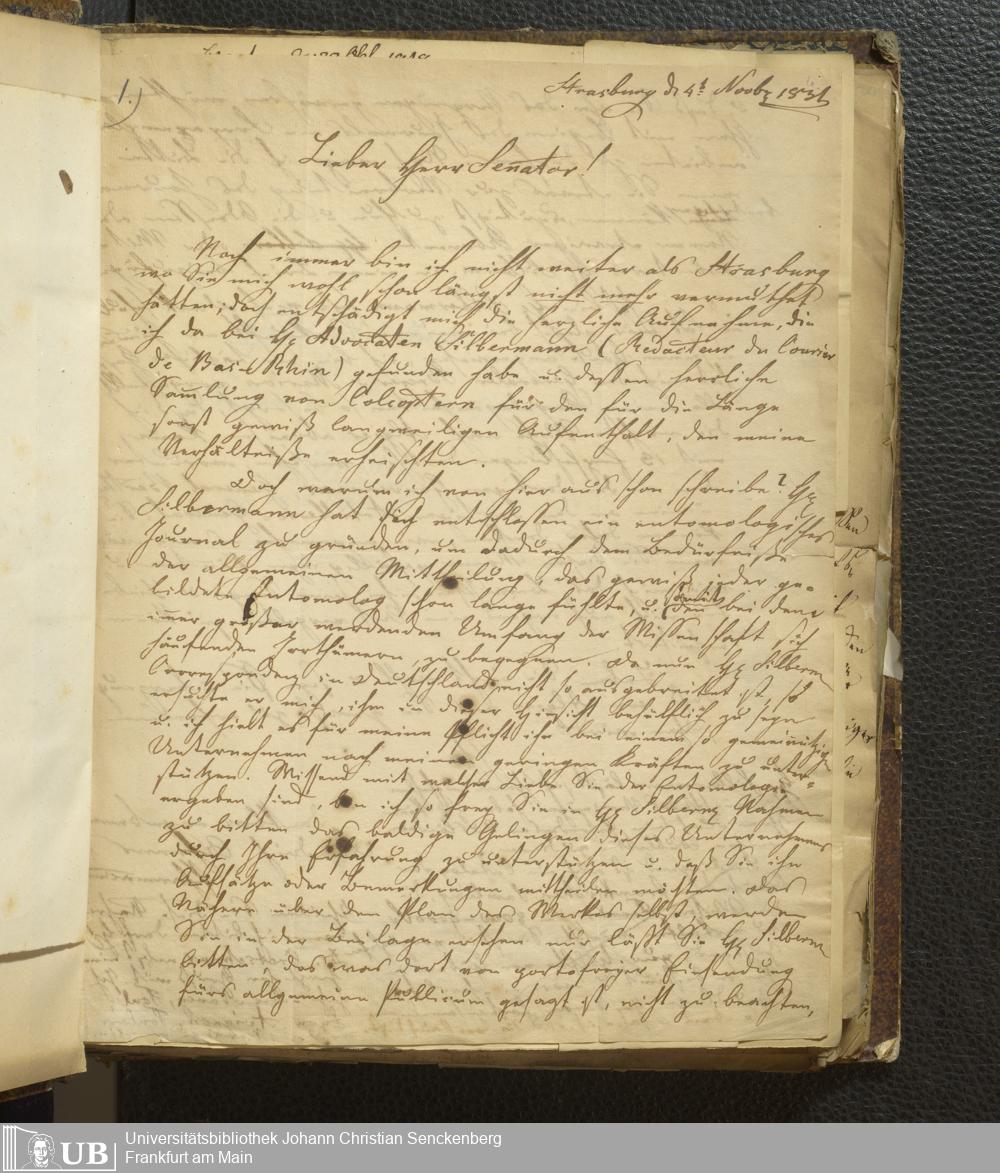 1.)
Strasburg d 4t Novbr 1831
Lieber Herr Senator!
Noch immer bin ich nicht weiter als Strasburg
wo Sie mich wohl schon längst nicht mehr vermuthet
hätten; doch entschädigt mich die herzliche Aufnahme, die
ich da bei Hr Advocaten Silbermann (Redacteur du Courier
de Bas-Rhin) gefunden habe u. dessen herrliche
Sam̄lung von Coleoptern für den für die Länge
sonst gewiß langweiligen Aufenthalt, den meine
Verhältniße erheischten.
Doch warum ich von hier aus schon schreibe? Hr
Silbermann hat sich entschlossen ein entomologisches
Journal zu gründen, um dadurch dem Bedürfniße
der allgemeinen Mittheilung, das gewiß jeder ge-
bildete Entomolog schon lange fühlte, u. damit den bei dem
im̄er größer werdenden Umfang der Wissenschaft sich
häufenden Irrthümern, zu begegnen. Da nun Hr Silberm
Correspondenz in Deutschland nicht so ausgebreitet ist, so
ersuchte er mich, ihm in dieser Hinsicht behülflich zu seyn
u. ich hielt es für meine Pflicht ihn bei einem so gemeinnützigen
Unternehmen nach meinen geringen Kräften zu unter-
stützen. Wissend mit welcher Liebe Sie der Entomologie
ergeben sind, bin ich so frey Sie in Hr Silberm Nahmen
zu bitten das baldige Gelingen dieses Unternehmens
durch Ihre Erfahrung zu unterstützen u. daß Sie ihm
Aufsätze oder Bemerkungen mittheilen möchten. Das
Nähere über den Plan des Werkes selbst, werden
Sie in der Beilage ersehen nur läßt Sie Hr Silberm
bitten, das was dort von portofreyer Einsendung
fürs allgemeine Publicum gesagt ist, nicht zu beachten,
UB
Universitätsbibliothek Johann Christian Senckenberg
Frankfurt am Main